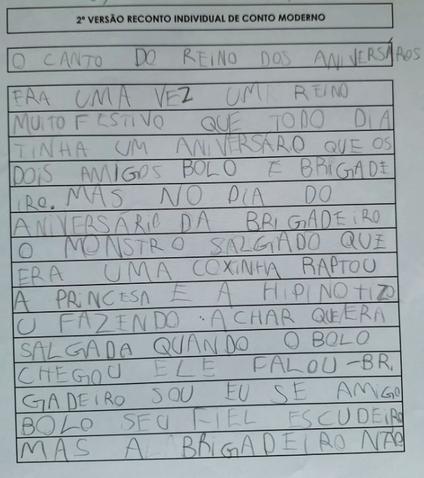 2ª VERSÃO RECONTO INDIVIDUAL DE CONTO MODERNO
O CANTO DO REINO DOS ANIVERSÁROS
ERA UMA VEZ UM REINO
MUITO FESTIVO QUE TODO DIA
TINHA UM ANIVERSÁRO QUE OS
DOIS AMIGOS BOLO E BRIGADE
IRO. MAS NO DIA DO
ANIVERSÁRIO DA BRIGADEIRO
O MONSTRO SALGADO QUE
ERA UMA COXINHA RAPTOU
A PRINCESA E A HIPINOTIZO
U FAZENDO A ACHAR QUE ERA
SALGADA QUANDO O BOLO
CHEGOU ELE FALOU - BRI
GADEIRO SOU EU SE AMIGO
BOLO SEU FIEL ESCUDEIRO
MAS A BRIGADEIRO NÃO